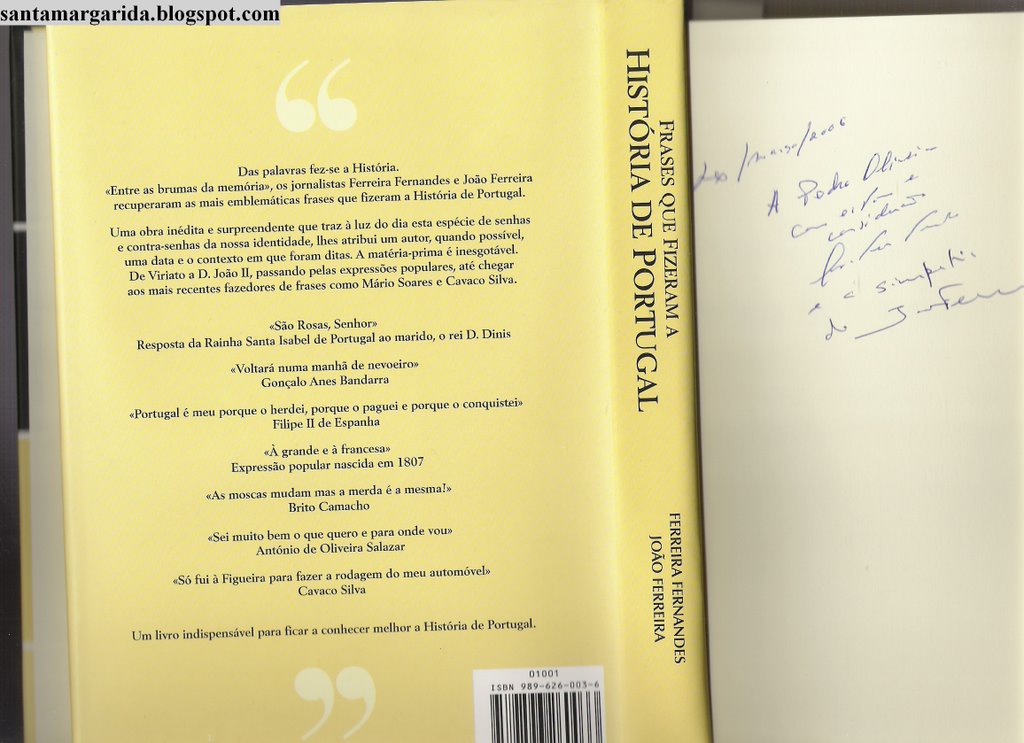 santamargarida.blogspot.com
Das palavras fez-se a História.
«Entre as brumas da memória», os jornalistas Ferreira Fernandes e João Ferreira
recuperaram as mais emblemáticas frases que fizeram a História de Portugal.
Uma obra inédita e surpreendente que traz à luz do dia esta espécie de senhas
e contra-senhas da nossa identidade, lhes atribui um autor, quando possível,
uma data e o contexto em que foram ditas. A matéria-prima é inesgotável.
De Viriato a D. João II, passando pelas expressões populares, até chegar
aos mais recentes fazedores de frases como Mário Soares e Cavaco Silva.
«São Rosas, Senhor»
Resposta da Rainha Santa Isabel de Portugal ao marido, o rei D. Dinis
«Voltará numa manhã de nevoeiro»
Gonçalo Anes Bandarra
«Portugal é meu porque o herdei, porque o paguei e porque o conquistei»
Filipe II de Espanha
«À grande e à francesa»
Expressão popular nascida em 1807
«As moscas mudam mas a merda é a mesma!»
Brito Camacho
«Sei muito bem o que quero e para onde vou»
António de Oliveira Salazar
«Só fui à Figueira para fazer a rodagem do meu automóvel»
Cavaco Silva
Um livro indispensável para ficar a conhecer melhor a História de Portugal.
01001
ISBN 989-626-003-6
FRASES QUE FIZERAM A
HISTÓRIA DE PORTUGAL
FERREIRA FERNANDES
JOÃO FERREIRA
A Pedro Oliveira
com
e a simpatia
do